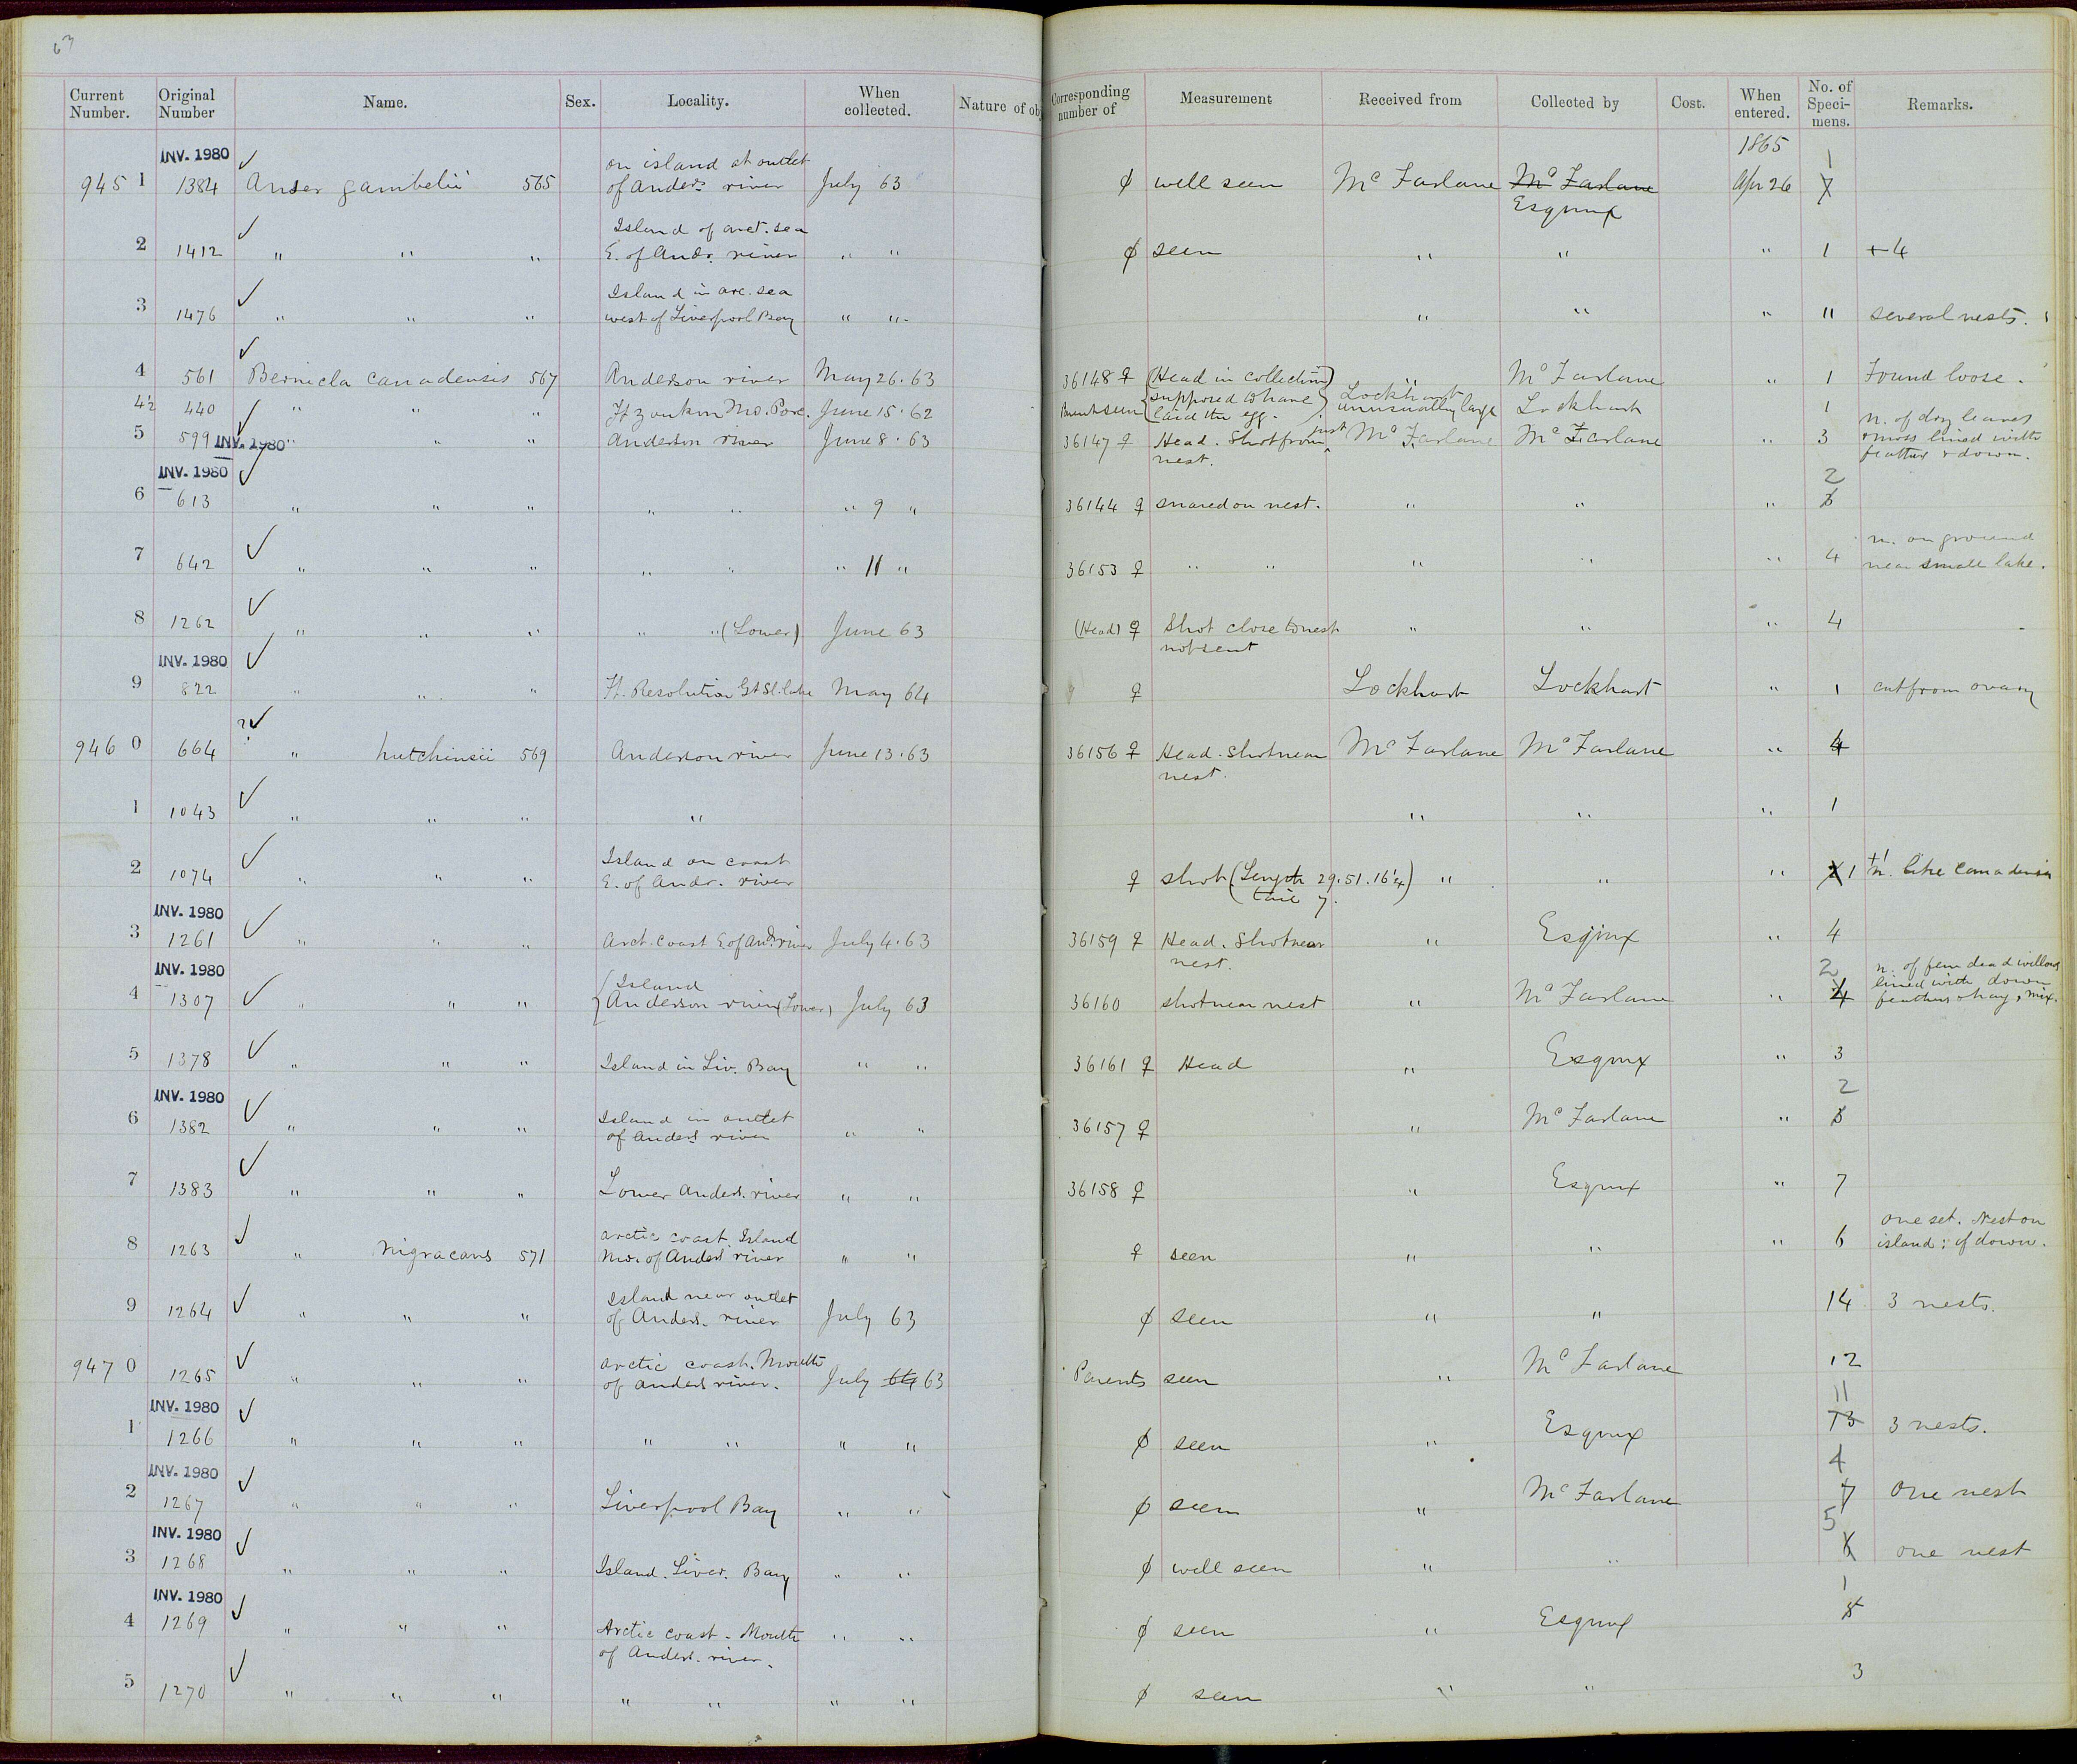 63
Current Number. Original Number Name. Sex. Locality. When collected. Nature of obj Corresponding number of Measurement Received from Collected by Cost. When entered. No. of Speci-mens. Remarks.
INV. 1980 on island at outlet 1865 1
945 1 1384 Anser gambelii 565 of Anders. river July 63 well seen McFarlane McFarlane Apr 26 7
Esqmx
Island of arct. sea
2 1412 " " " E. of Andr. river " " seen " " " 1 + 4
Island in arc. sea
3 1476 " " " west of Liverpool Bay " " " " " 11 several nests.
4 561 Bernicla canadensis 567 Anderson river May 26. 63 36148 ♀ (Head in collection) " McFarlane " 1 Found loose.
4½ 440 " " " Ft Yonkon Mo. Porc. June 15. 62 Parent seen supposed to have laid the egg. Lockhart unusually large Lockhart 1
5 599 INV. 1980 " " " Anderson river June 8. 63 36147 ♀ Head. Shot from just nest. McFarlane McFarlane " 3 n. of dry leaves & moss lined with feathers & down.
INV. 1980 2
6 613 " " " " " " 9 " 36144 ♀ snared on nest. " " " 3
7 642 " " " " " " 11 " 36153 ♀ " " " " " 4 n. on ground near small lake.
8 1262 " " " " " (Lower) June 63 (Head) ♀ Shot close to nest not sent " " " 4
INV. 1980
9 822 " " " Ft. Resolution Gt Sl. lake May 64 ♀ Lockhart Lockhart " 1 cut from ovary
946 0 664 ? " hutchinsii 569 Anderson river June 13. 63 36156 ♀ Head. Shot near nest. McFarlane McFarlane " 4
1 1043 " " " " " " " 1
Island on coast
2 1074 " " " E. of Andr. river ♀ shot (Length 29. 51. 16¼ tail 7.) " " " 2 1 +1 n. like Canadensis
INV. 1980
3 1261 " " " Arct. coast E of And. river July 4. 63 36159 ♀ Head. Shot near nest. " Esqmx " 4
INV. 1980 2
4 1307 " " " Island Anderson river (Lower) July 63 36160 shot near nest " McFarlane " 4 n. of few dead willows lined with down feathers & hay, mix.
5 1378 " " " Island in Liv. Bay " " 36161 ♀ Head " Esqmx " 3
INV. 1980 2
6 1382 " " " Island in outlet of Anders river " " 36157 ♀ " McFarlane " 3
7 1383 " " " Lower Anders. river " " 36158 ♀ " Esqmx " 7
8 1263 " nigracans 571 arctic coast Island mo. of Anders river " " ♀ seen " " " 6 one set. Nest on island; of down.
9 1264 " " " Island near outlet of Anders. river July 63 seen " " 14 3 nests.
947 0 1265 " " " arctic coast. Mouth of Anders river. July 64 63 Parents seen " McFarlane 12
INV. 1980 11
1 1266 " " " " " " " seen " Esqmx 13 3 nests.
INV. 1980 4
2 1267 " " " Liverpool Bay " " seen " McFarlane 7 One nest
INV. 1980 5
3 1268 " " " Island. Liver. Bay " " well seen " " 6 one nest
INV. 1980 1
4 1269 " " " Arctic coast - Mouth of Anders. river. " " seen " Esqmx 8
5 1270 " " " " " " " seen " " 3